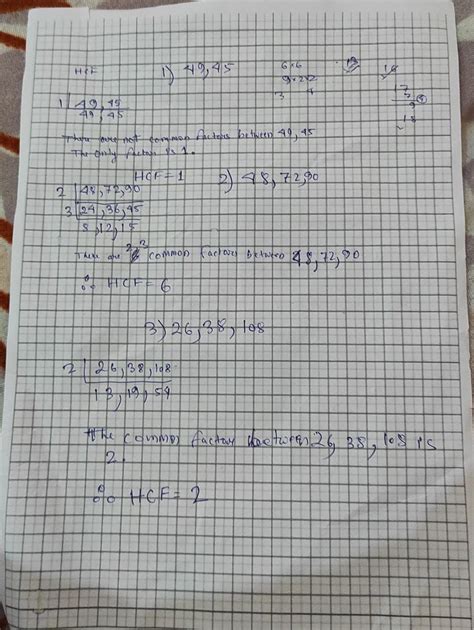 HCF 1) 49,45 6×6
9×2×2
3 4
13
18
1 | 49, 45
49, 45
There are not common factors between 49, 45
The only factor is 1.
HCF = 1 2) 48,72,90
2 | 48,72,90
3 | 24,36,45
8,12,15
There are 2 common factors between 48,72,90
∴ HCF = 6
3) 26,38,108
2 | 26,38,108
13,19,54
The common factors between 26, 38, 108 is
2.
∴ HCF = 2